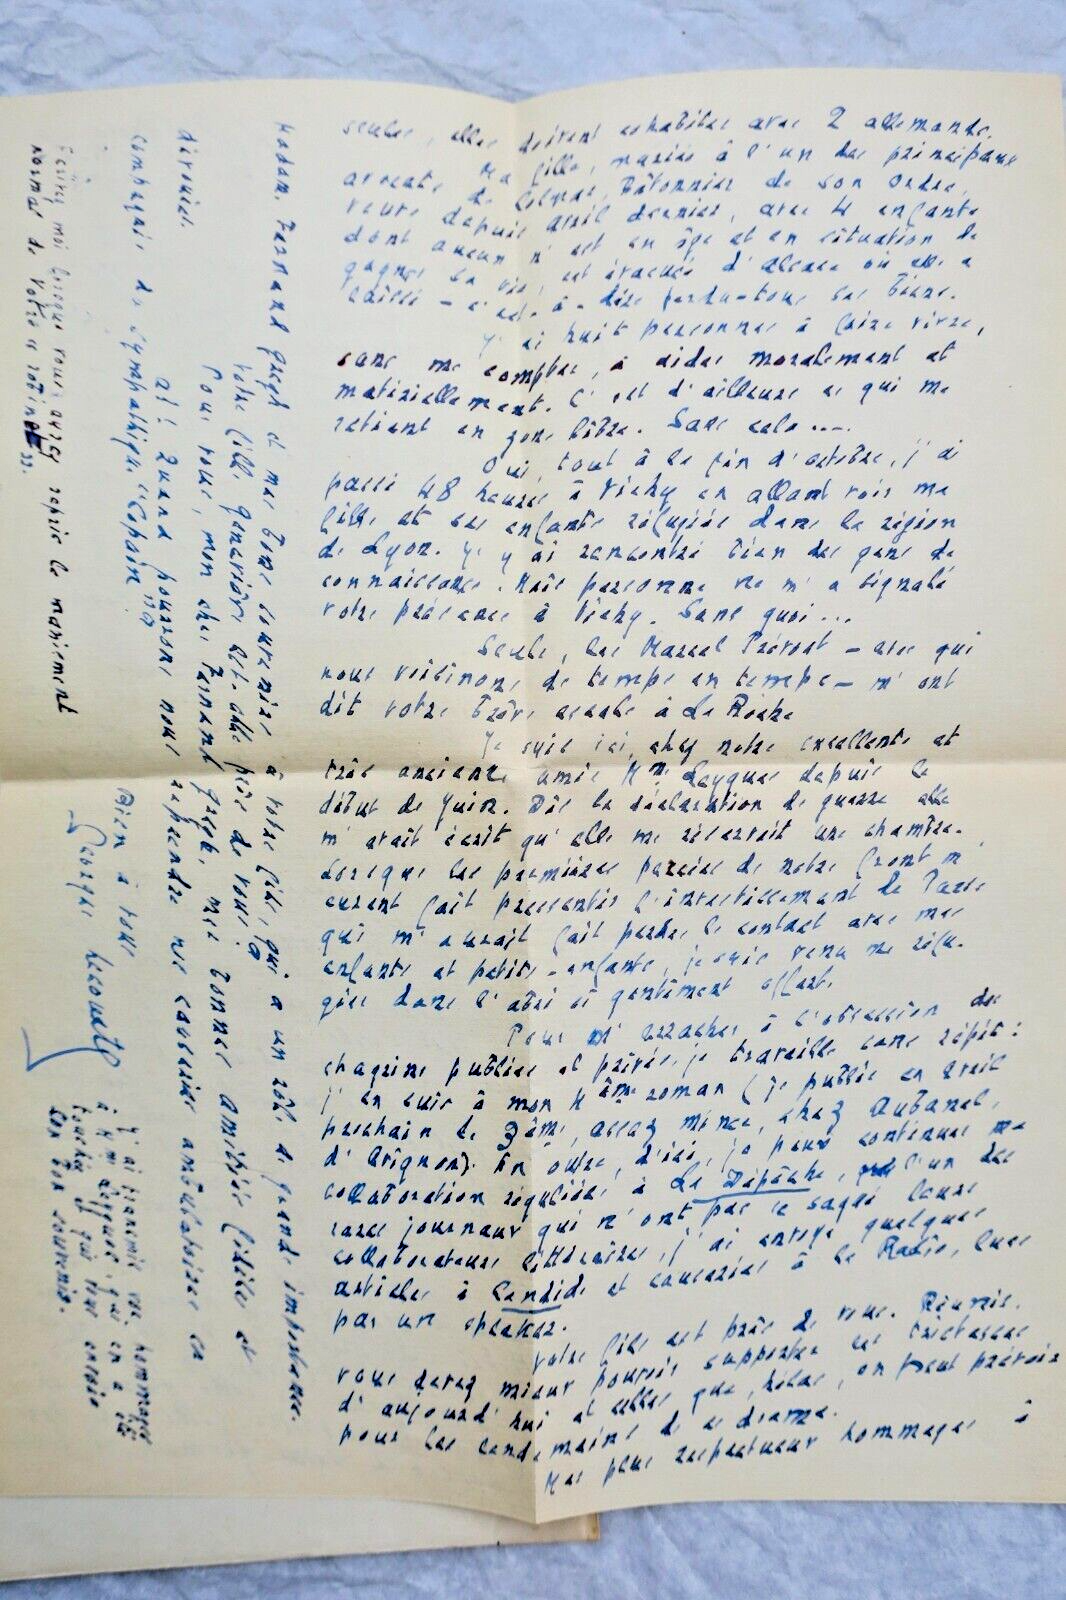 seules, elles doivent cohabiter avec 2 allemands.
Ma fille, mariée à l'un des principaux
avocats de Colmar, Bâtonnier de son Ordre,
veuve depuis avril dernier, avec 4 enfants
dont aucun n'est en âge et en situation de
gagner sa vie, est évacuée d'Alsace où elle a
laissé - c'est-à-dire perdu - tous ses biens.
J'ai huit personnes à faire vivre,
sans me compter, à aider moralement et
matériellement. C'est d'ailleurs ce qui me
retient en zone libre. Sans cela....
Oui, tout à la fin d'octobre, j'ai
passé 48 heures à Vichy en allant voir ma
fille et ses enfants réfugiés dans la région
de Lyon. J'y ai rencontré bien des gens de
connaissance. Mais personne ne m'a signalé
votre présence à Vichy. Sans quoi...
Seuls, les Marcel Prévost - avec qui
nous voisinons de temps en temps - m'ont
dit votre brève escale à La Roche
Je suis ici, chez notre excellente et
très ancienne amie Mme Leygues depuis le
début de Juin. Dès la déclaration de guerre elle
m'avait écrit qu'elle me réservait une chambre.
Lorsque les premières percées de notre front m'
eurent fait pressentir l'investissement de Paris
qui m'aurait fait perdre le contact avec mes
enfants et petits-enfants, je suis venu me réfu-
gier dans l'abri si gentiment offert.
Pour m'arracher à l'obsession des
chagrins publics et privés, je travaille sans répit :
j'en suis à mon 4ème roman (je publie en avril
prochain le 3ème, assez mince, chez Aubanel,
d'Avignon). En outre, d'ici, je peux continuer ma
collaboration régulière à La Dépêche, l'un des
rares journaux qui n'ont pas
collaborateurs littéraires, j'ai envoyé quelques
articles à Candide et causeries à la Radio, lues
par un speaker.
Votre fils est près de vous. Réunis,
vous devez mieux pouvoir supporter les tristesses
d'aujourd'hui et celles que, hélas, on peut prévoir
pour les lendemains de ce drame.
Mes plus respectueux hommages à
Madame Fernand Gregh et mes bons souvenirs à votre fils, qui a un rôle de grande importance.
Votre fille Geneviève est-elle près de vous ?
Pour vous, mon cher Fernand Gregh, mes bonnes amitiés fidèles et
dévouées.
Ah ! Quand pourrons nous reprendre nos causeries ambulatoires en
compagnie du sympathique "Copain" ??
Bien à vous
Georges Lecomte
Ecrivez moi lorsque vous aurez repris le maniement
normal de votre "
J'ai transmis vos hommages
à Mme Leygues, qui en a été
touchée et qui vous envoie
son bon souvenir.